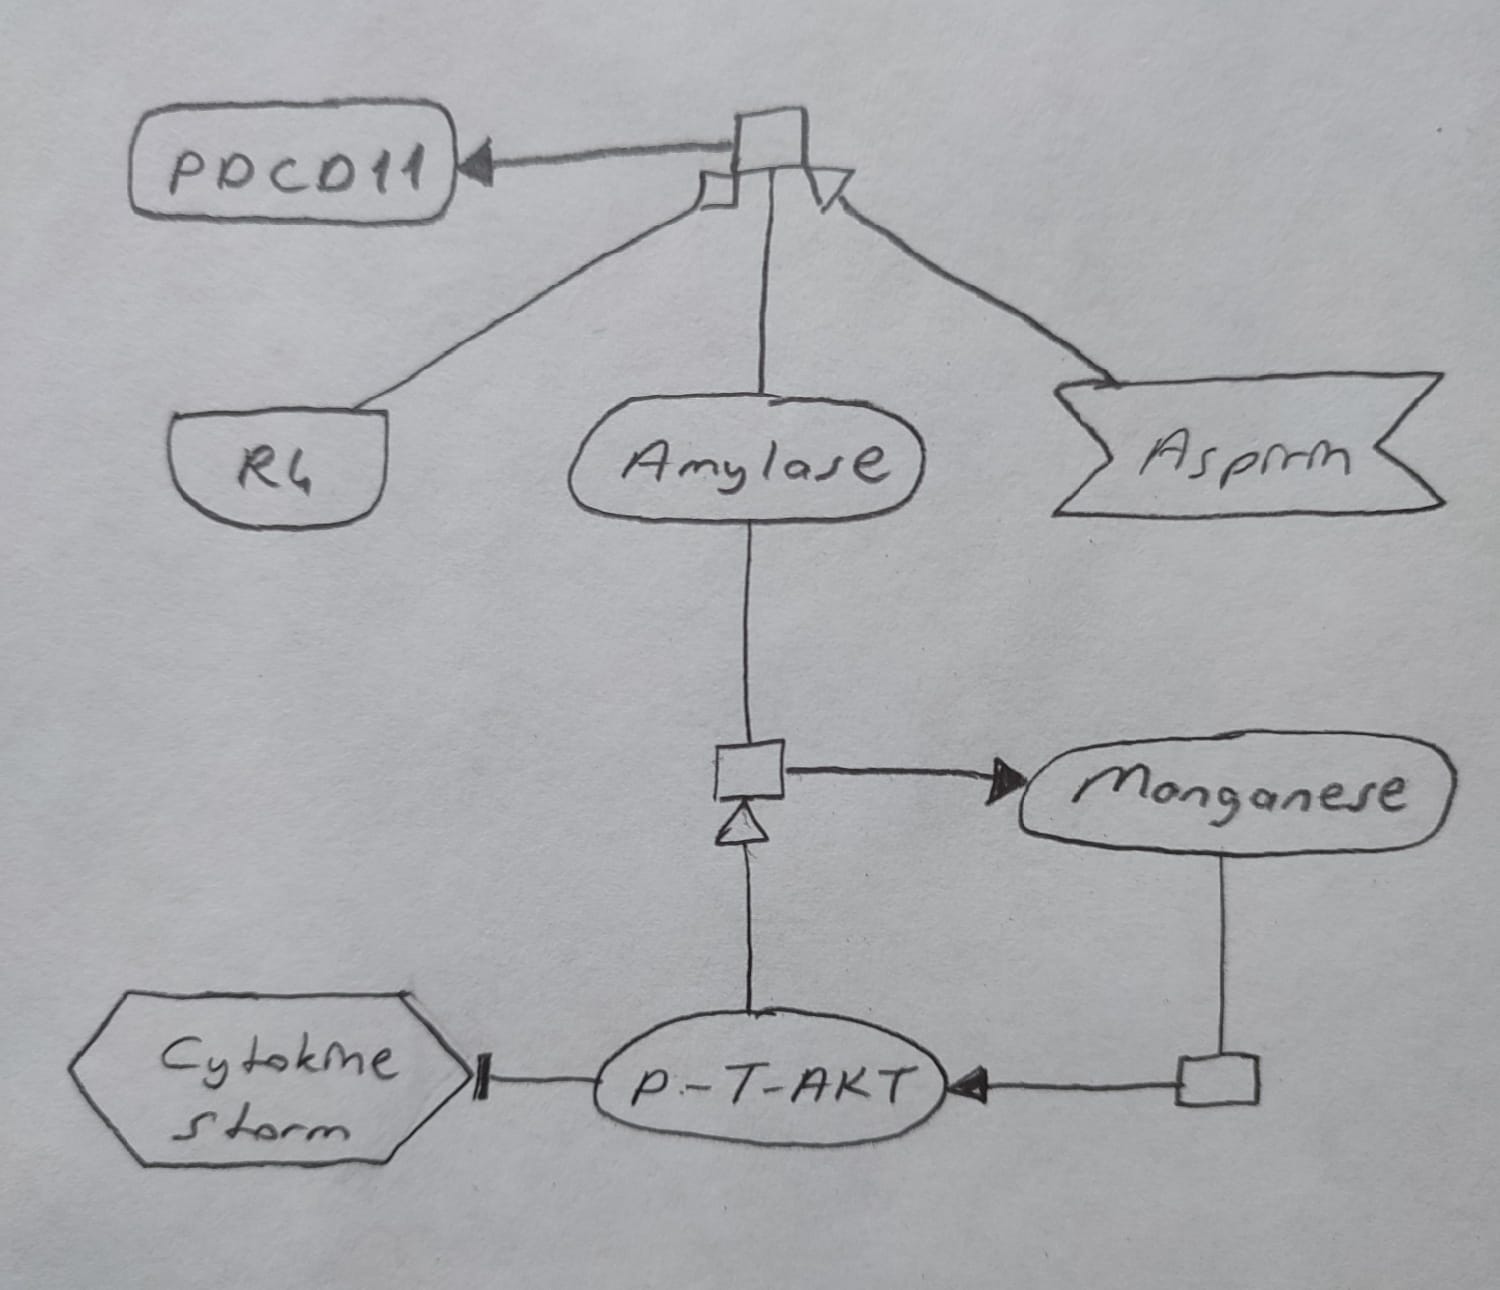 PDCD11
R4
Amylase
Aspirin
Manganese
Cytokine
storm
P-T-AKT